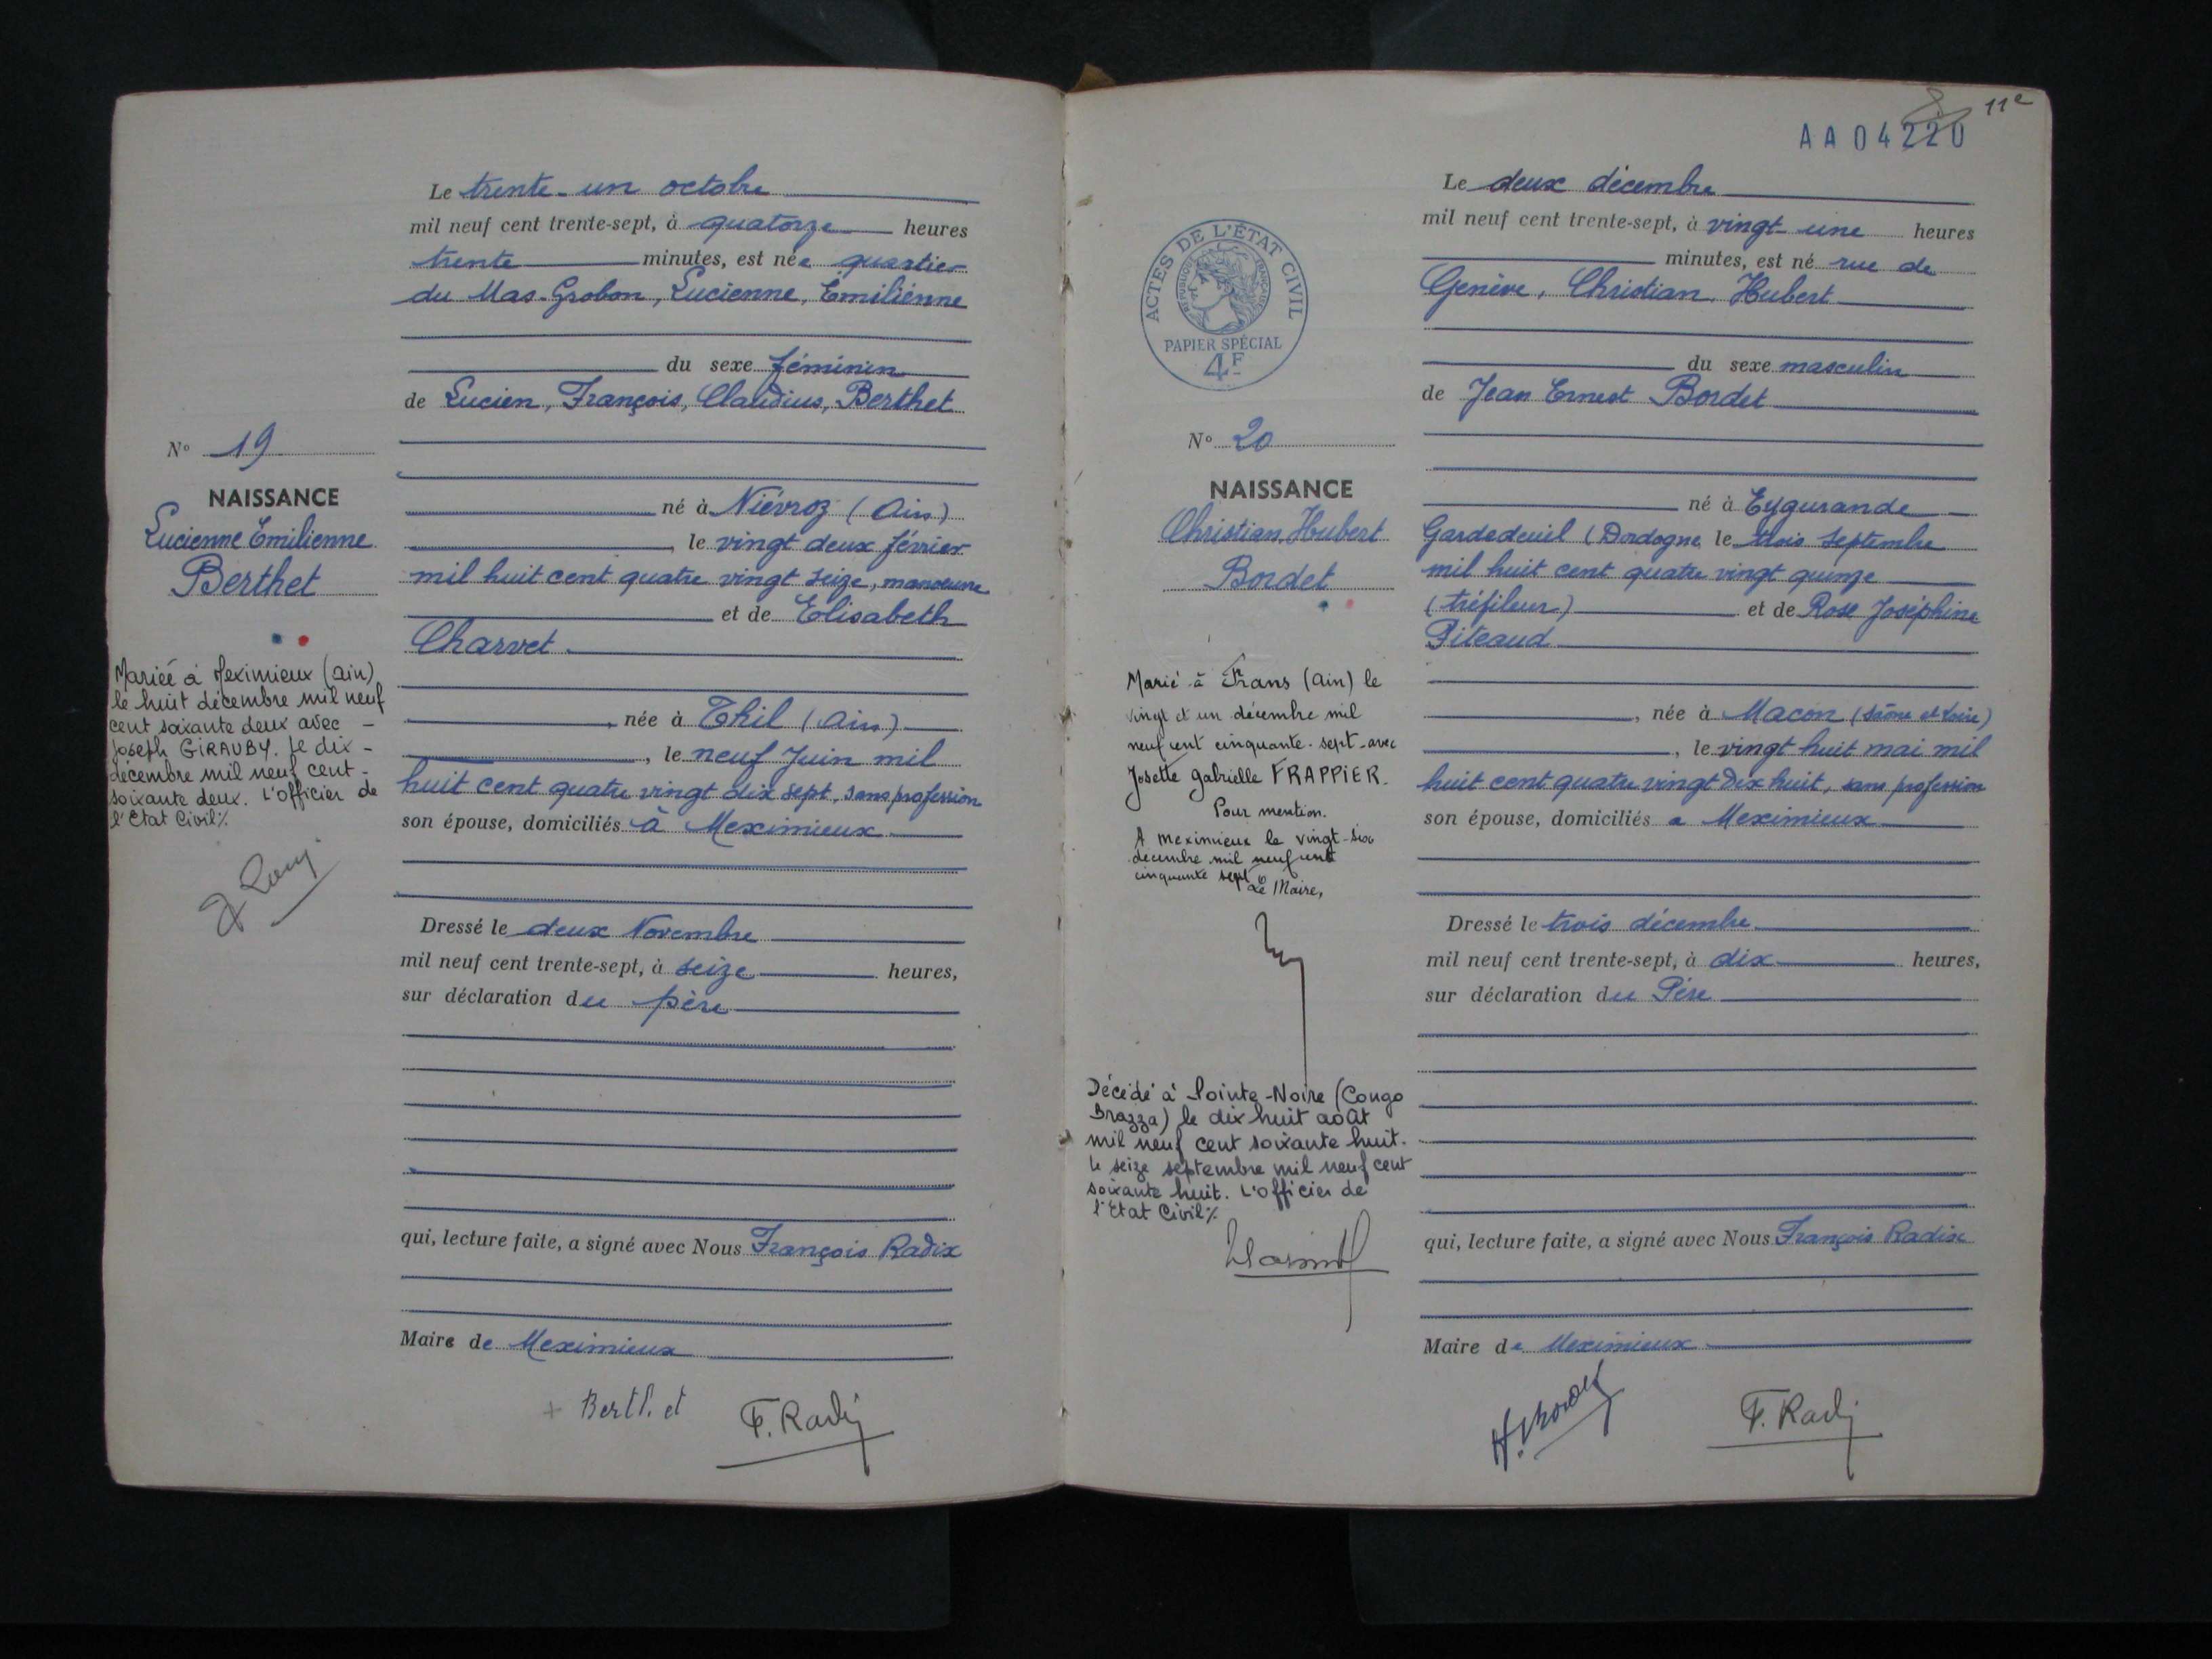 Le trente-un octobre
mil neuf cent trente-sept, à quatorze heures
trente minutes, est née quartier
du Mas-Grobon, Lucienne, Emilienne
du sexe féminin
de Lucien, François, Claudius, Berthet
N° 19
NAISSANCE
Lucienne Emilienne
Berthet
né à Niévroz (Ain)
, le vingt deux février
mil huit cent quatre vingt seize, manoeuvre
et de Elisabeth
Charvet
, née à Thil (Ain)
, le neuf Juin mil
huit cent quatre vingt dix sept, sans profession
son épouse, domiciliés à Meximieux
Mariée à Meximieux (Ain)
le huit décembre mil neuf
cent soixante deux avec -
Joseph GIRAUBY. Le dix -
décembre mil neuf cent -
soixante deux. L'Officier de
l'Etat Civil %
Dressé le deux Novembre
mil neuf cent trente-sept, à seize heures,
sur déclaration du père
qui, lecture faite, a signé avec Nous François Radix
Maire de Meximieux
+ Berthet
F. Radix
11e
AA 04220
ACTES DE L'ÉTAT CIVIL
RÉPUBLIQUE FRANÇAISE
PAPIER SPÉCIAL
4F
Le deux décembre
mil neuf cent trente-sept, à vingt-une heures
minutes, est né rue de
Genève, Christian, Hubert
du sexe masculin
de Jean Ernest Bordet
N° 20
NAISSANCE
Christian, Hubert
Bordet
né à Eygurande
Gardedeuil (Dordogne, le trois Septembre
mil huit cent quatre vingt quinze
(tréfileur) et de Rose Joséphine
Piteaud
, née à Macon (Saône et Loire)
, le vingt huit mai mil
huit cent quatre vingt dix huit, sans profession
son épouse, domiciliés a Meximieux
Marié à Frans (Ain) le
vingt et un décembre mil
neuf cent cinquante-sept-avec
Josette Gabrielle FRAPPIER.
Pour mention.
A Meximieux le vingt-six
décembre mil neuf cent
cinquante sept
Le Maire,
Décédé à Pointe-Noire (Congo
Brazza) le dix huit août
mil neuf cent soixante huit.
Le seize septembre mil neuf cent
soixante huit. L'Officier de
l'Etat Civil %
Dressé le trois décembre
mil neuf cent trente-sept, à dix heures,
sur déclaration du Père
qui, lecture faite, a signé avec Nous François Radix
Maire de Meximieux
F. Radix